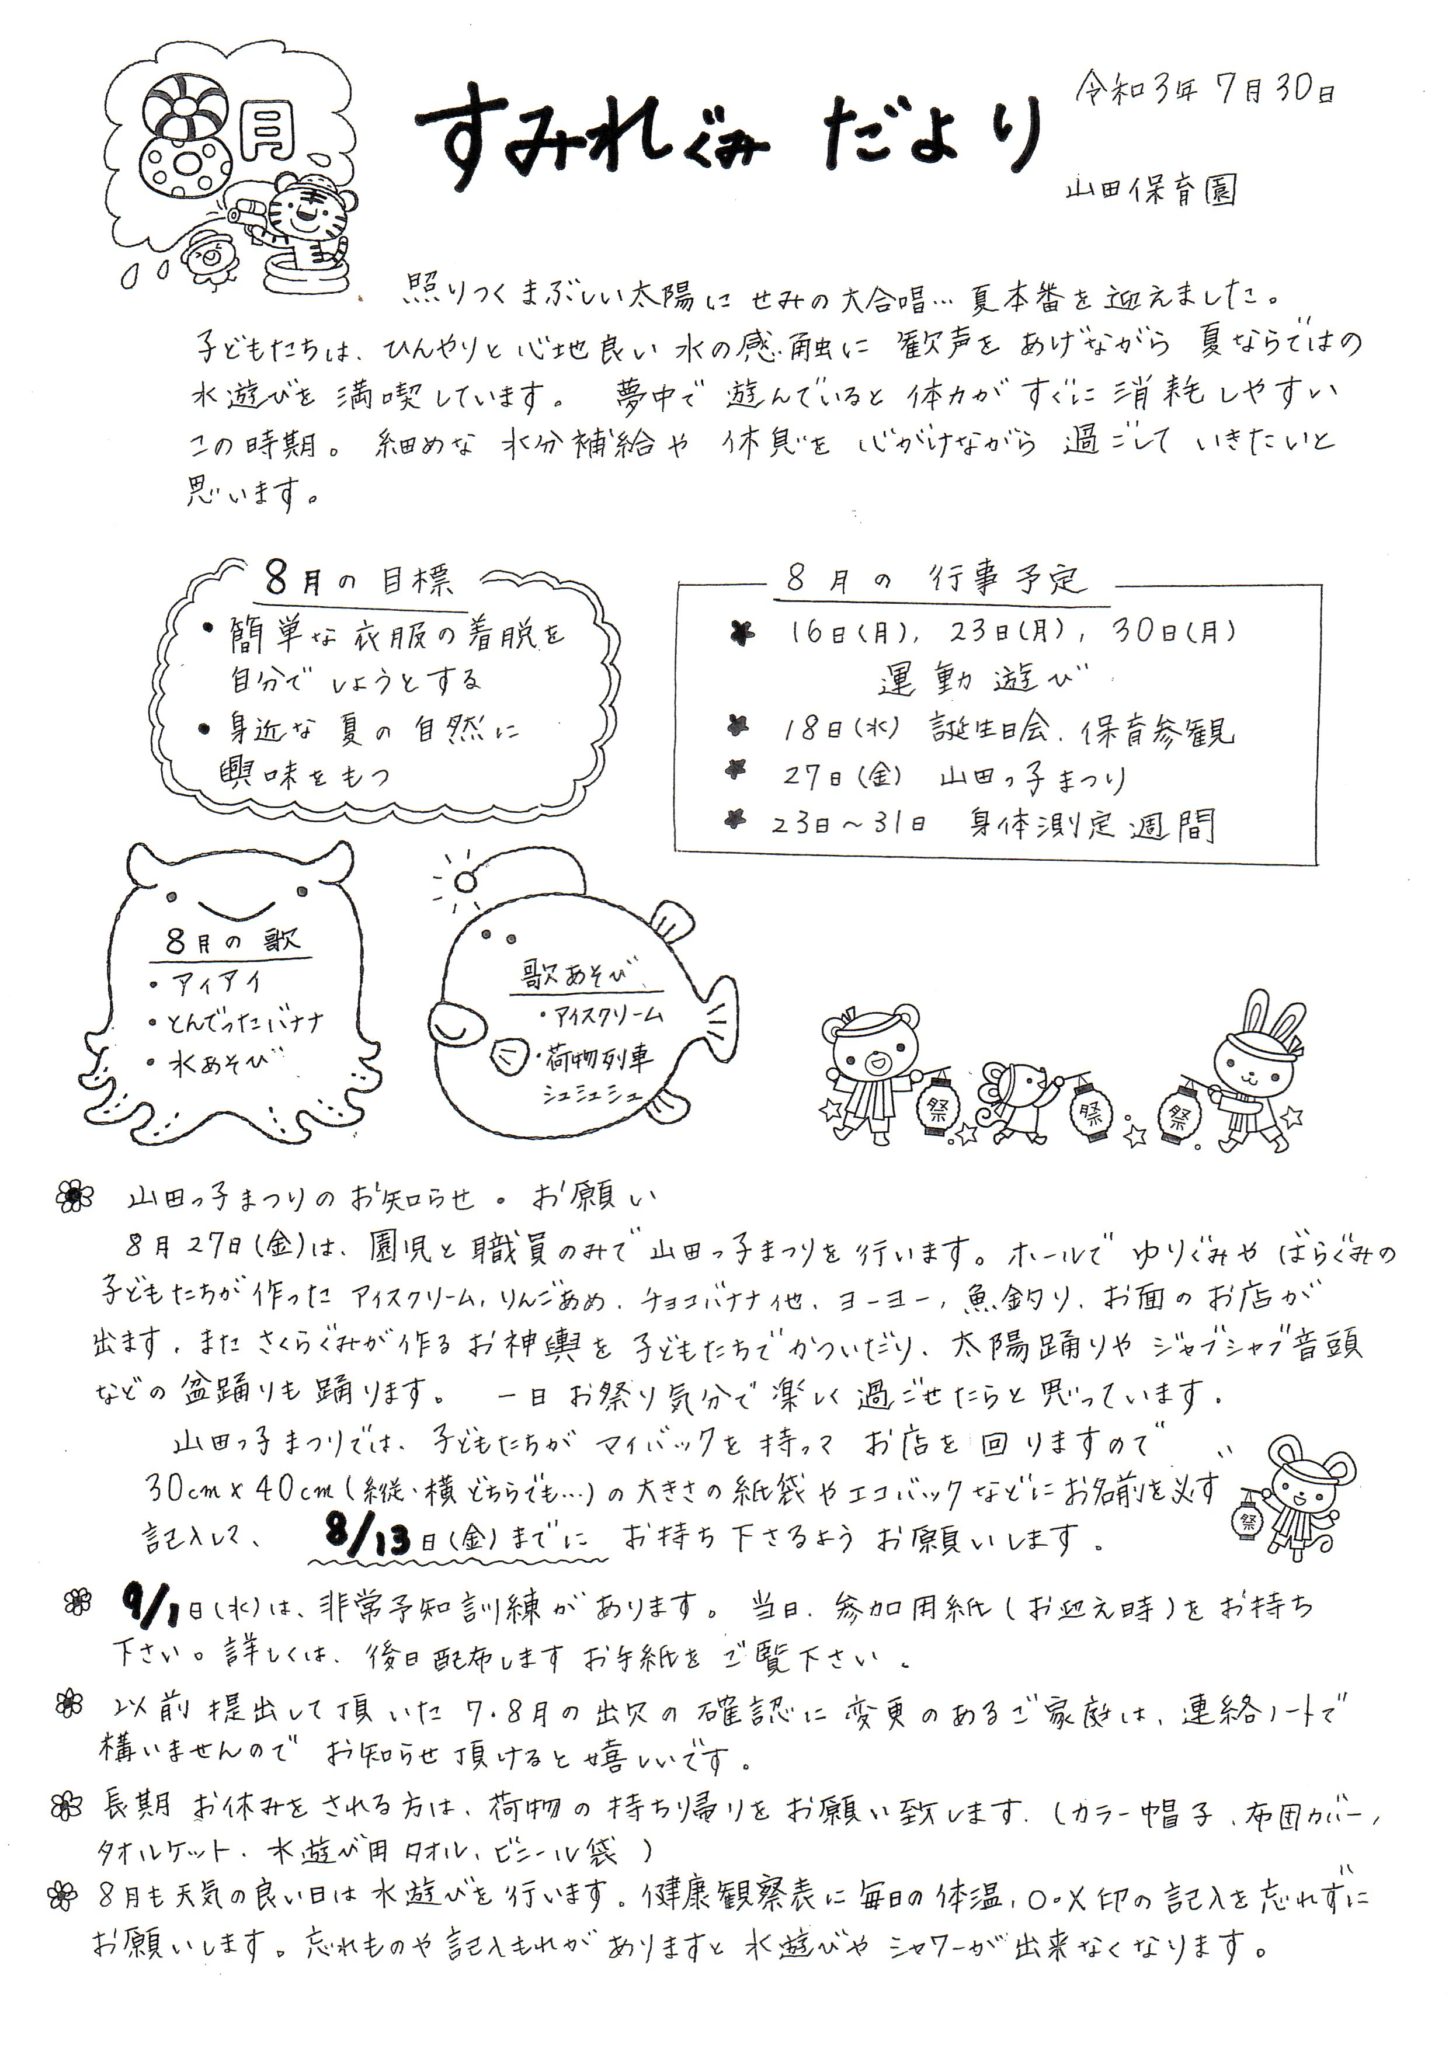 8月
すみれぐみ だより
令和3年 7月30日
山田保育園
照りつくまぶしい太陽に せみの大合唱… 夏本番を迎えました。
子どもたちは、ひんやりと心地良い水の感触に 歓声をあげながら 夏ならではの
水遊びを満喫しています。 夢中で遊んでいると体力がすぐに消耗しやすい
この時期。細めな水分補給や 休息を心がけながら過ごしていきたいと
思います。
8月の目標
• 簡単な衣服の着脱を
自分でしようとする
• 身近な夏の自然に
興味をもつ
8月の行事予定
★ 16日(月), 23日(月), 30日(月)
運動遊び
★ 18日(水) 誕生日会、保育参観
★ 27日(金) 山田っ子まつり
★ 23日〜31日 身体測定週間
8月の歌
・アイアイ
・とんでったバナナ
・水あそび
歌あそび
・アイスクリーム
・荷物列車
シュシュシュ
祭
祭
祭
山田っ子まつりのお知らせ・お願い
8月27日(金)は、園児と職員のみで山田っ子まつりを行います。ホールで ゆりぐみや ばらぐみの
子どもたちが作った アイスクリーム、りんごあめ、チョコバナナ他、ヨーヨー、魚釣り、お面のお店が
出ます。また さくらぐみが作るお神輿を子どもたちでかついだり、太陽踊りや ジャブジャブ音頭
などの盆踊りも踊ります。 一日お祭り気分で楽しく過ごせたらと思っています。
山田っ子まつりでは、子どもたちが マイバックを持って お店を回りますので
30cm×40cm(縦・横どちらでも…)の大きさの紙袋やエコバックなどにお名前を必ず
記入して、 8/13日(金)までに お持ち下さるようお願いします。
祭
9/1日(水)は、非常予知訓練があります。当日、参加用紙(お迎え時)をお持ち
下さい。詳しくは、後日配布しますお手紙をご覧下さい。
以前提出して頂いた7・8月の出欠の確認に変更のあるご家庭は、連絡ノートで
構いませんのでお知らせ頂けると嬉しいです。
長期お休みをされる方は、荷物の持ち帰りをお願い致します。(カラー帽子、布団カバー、
タオルケット、水遊び用タオル、ビニール袋)
8月も天気の良い日は水遊びを行います。健康観察表に毎日の体温、○・×印の記入を忘れずに
お願いします。忘れものや記入もれがありますと水遊びやシャワーが出来なくなります。